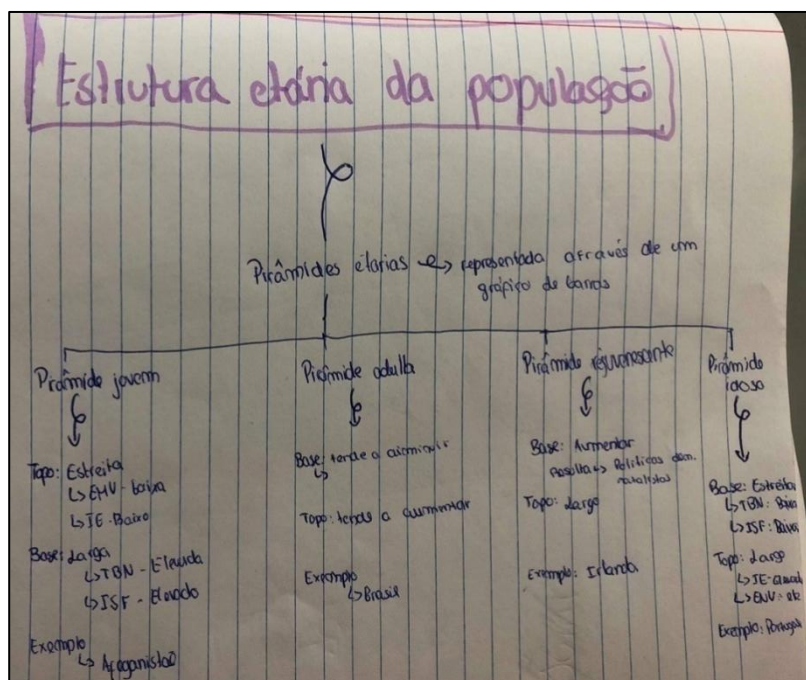 Estrutura etária da população
Pirâmides etárias ↪ representada através de um
gráfico de barras
Pirâmide jovem
Topo: Estreita
↳ EMV - baixa
↳ IE - Baixo
Base: Larga
↳ TBN - Elevada
↳ ISF - Elevado
Exemplo
↳ Afeganistão
Pirâmide adulta
Base: tende a diminuir
Topo: tende a aumentar
Exemplo
↳ Brasil
Pirâmide rejuvenescente
Base: Aumentar
↪ Políticas dem.
natalistas
Topo: Largo
Exemplo: Irlanda
Pirâmide
idosa
Base: Estreita
↳ TBN: Baixa
↳ ISF: Baixo
Topo: Largo
↳ IE-
Exemplo: Portugal